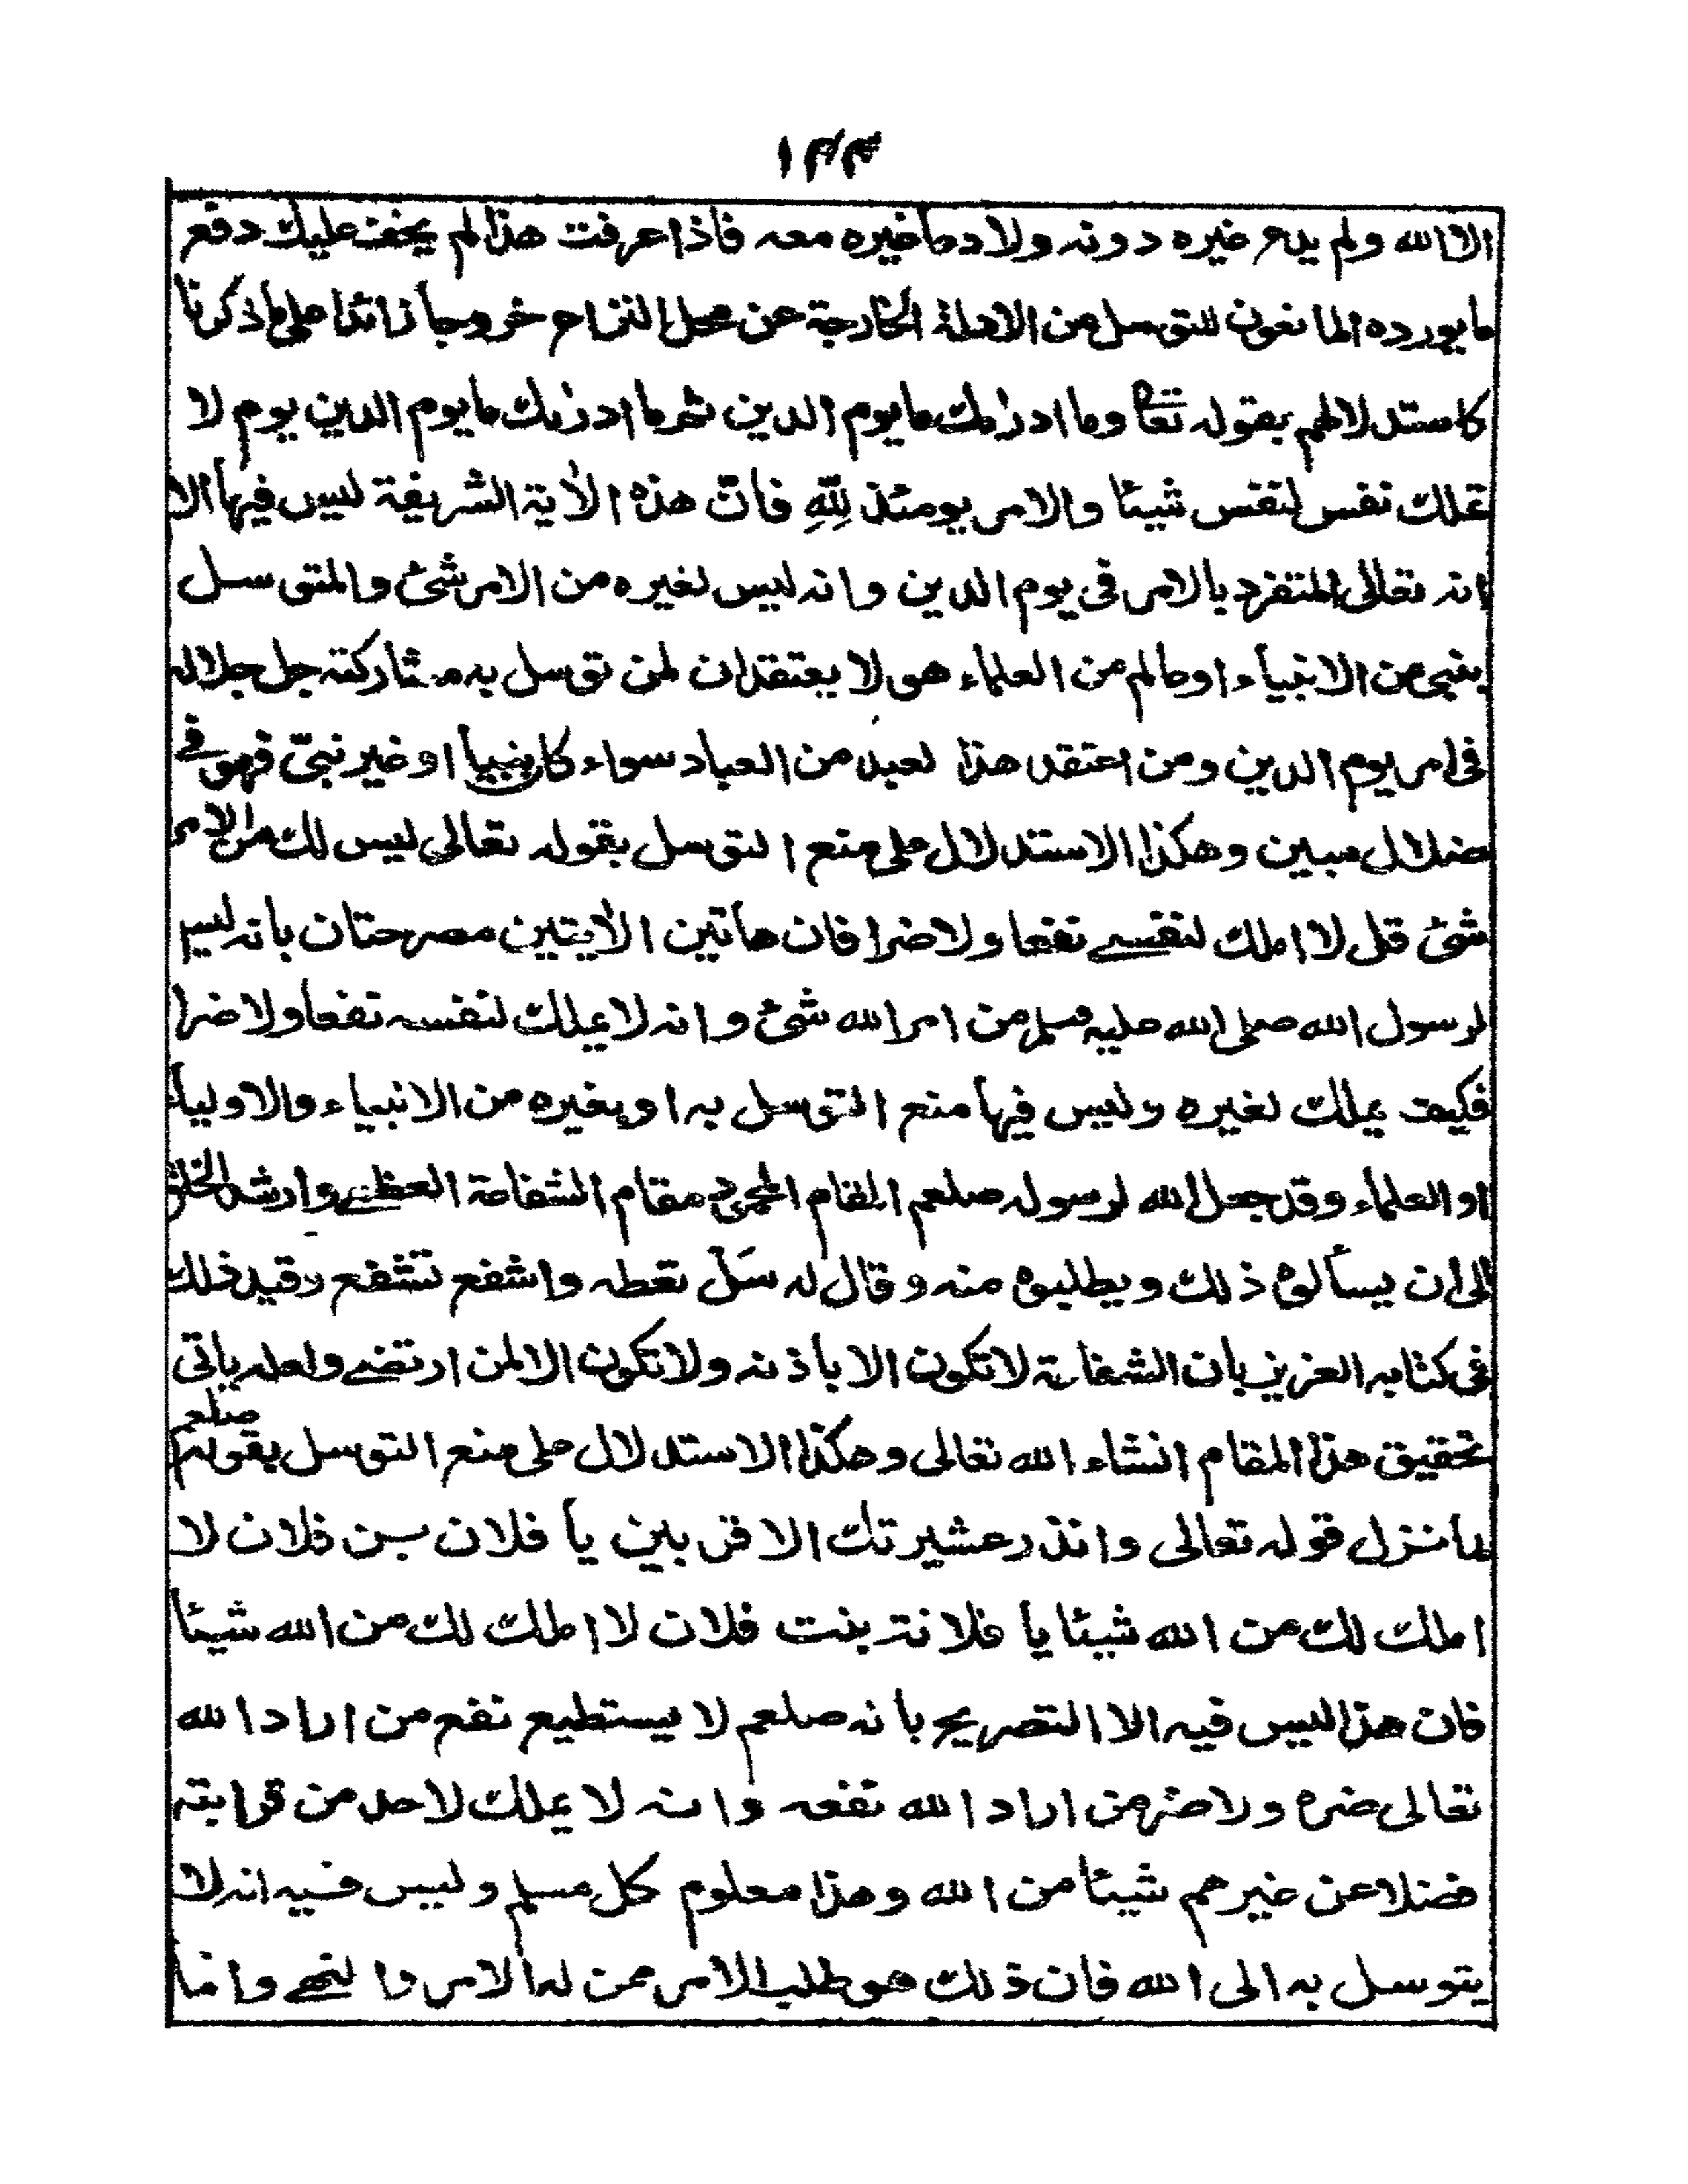 ١٤٤
الا الله ولم يدع غيره دونه ولا دعا غيره معه فاذا عرفت هذا لم يخف عليك دفع
ما يورده المانعون للتوسل من الادلة الخارجة عن محل النزاع خروجا زائدا على ما ذكرنا
كاستدلالهم بقوله تعالى وما ادرٰىك ما يوم الدين ثم ما ادرٰىك ما يوم الدين يوم لا
تملك نفس لنفس شيئا والامر يومئذ لِلّٰهِ فانّ هذه الاٰية الشريفة ليس فيها الا
انه تعالى المتفرد بالامر فى يوم الدين وانه ليس لغيره من الامر شئ والمتوسل
بنبى من الانبياء او عالم من العلماء هو لا يعتقد ان لمن توسل به مشاركته جل جلاله
فى امر يوم الدين ومن اعتقد هذا لعبد من العباد سواء كان نبيا او غير نبىّ فهو فے
ضلال مبين وهكذا الاستدلال على منع التوسل بقوله تعالى ليس لك من الامر
شئ قل لا املك لنفسے نفعا ولا ضرا فان هاتين الاٰيتين مصرحتان بانه ليس
لرسول الله صلى الله عليه وسلم من امر الله شئ وانه لا يملك لنفسه نفعا ولا ضرا
فكيف يملك لغيره وليس فيها منع التوسل به او بغيره من الانبياء والاولياء
او العلماء وقد جعل الله لرسوله صلعم المقام المحمود مقام الشفاعة العظمے وارشد الخلق
الى ان يسألوه ذلك ويطلبوه منه وقال له سَلْ تعطه واشفع تشفع وقيد ذلك
فى كتابه العزيز بان الشفاعة لا تكون الا باذنه ولا تكون الا لمن ارتضے ولعله ياتى
تحقيق هذا المقام انشاء الله تعالى وهكذا الاستدلال على منع التوسل بقوله صلعم
لما نزل قوله تعالى وانذر عشيرتك الاقربين يا فلان بن فلان لا
املك لك من الله شيئا يا فلانة بنت فلان لا املك لك من الله شيئا
فان هذا ليس فيه الا التصريح بانه صلعم لا يستطيع نفع من اراد الله
تعالى ضره ولا ضر من اراد الله نفعه وانه لا يملك لاحد من قرابته
فضلا عن غيرهم شيئا من الله وهذا معلوم كل مسلم وليس فيه انه لا
يتوسل به الى الله فان ذلك هو طلب الامر ممن له الامر والنهے وانما